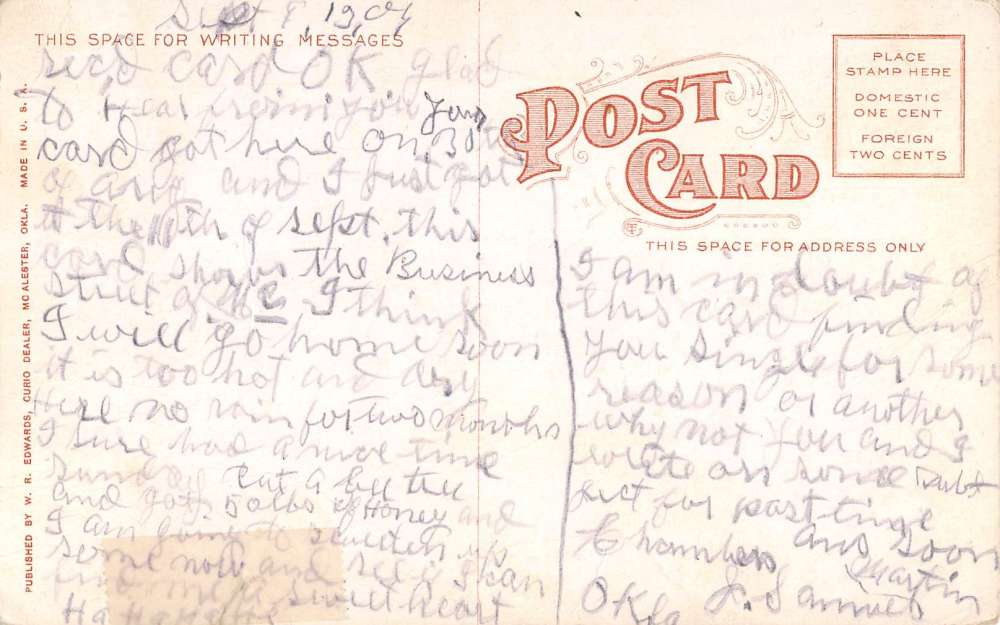 Sept 9, 1909
THIS SPACE FOR WRITING MESSAGES
recd card OK glad
to Hear from you your
card got here on 30
of aug and I just got
it the 8th of Sept. this
card shows the Business
Street of Mc I think
I will go home soon
it is too hot and dry
Here no rain for two months
I sure had a nice time
Sunday cut a bee tree
and got 50 lbs of Honey and
I am going to sweeten up
some now and see if I can
find me a sweetheart
Ha Ha
POST CARD
PLACE
STAMP HERE
DOMESTIC
ONE CENT
FOREIGN
TWO CENTS
THIS SPACE FOR ADDRESS ONLY
I am in doubt of
this card finding
you single for some
reason or another
why not you and I
write on some
for past time
Ans Soon
Chambers Martin
Okla J. Samuel
PUBLISHED BY W. R. EDWARDS, CURIO DEALER, MC ALESTER, OKLA. MADE IN U. S. A.